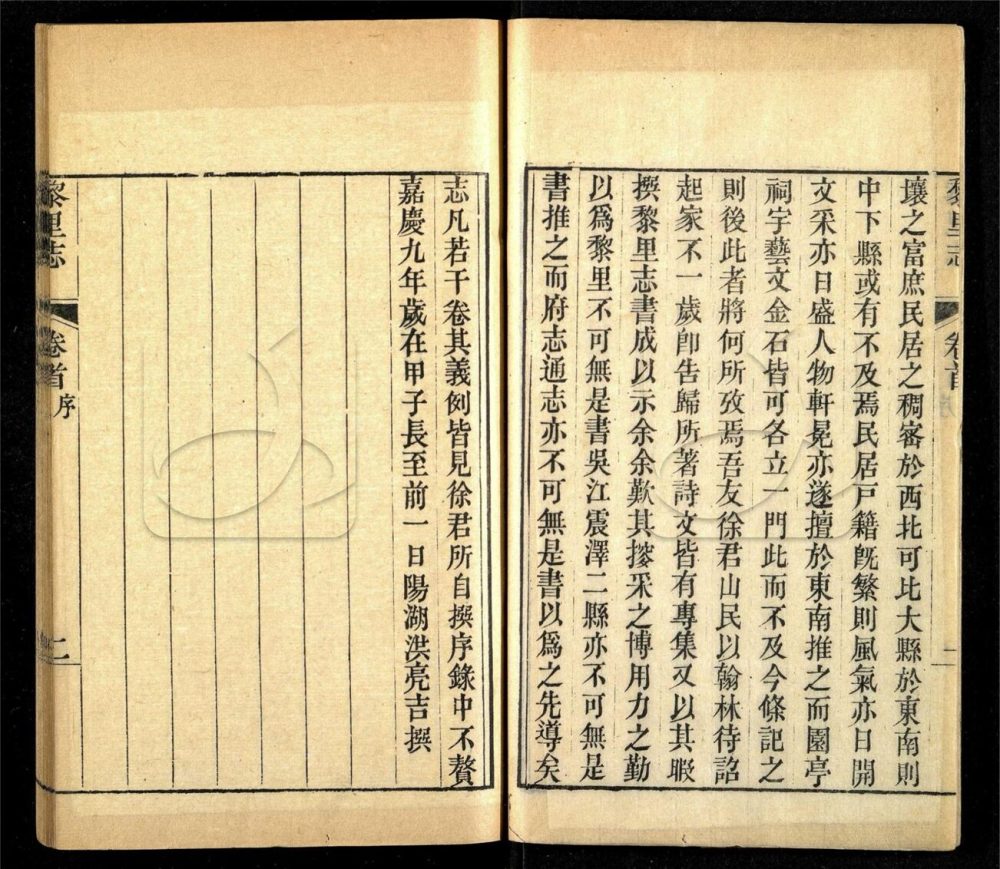 黎里志 卷首 序 二
壤之富庶民居之稠審於西北可比大縣於東南則
中下縣或有不及焉民居戸籍旣繁則風氣亦日開
文采亦日盛人物軒冕亦遂擅於東南推之而園亭
祠宇藝文金石皆可各立一門此而不及今條記之
則後此者將何所攷焉吾友徐君山民以翰林待詔
起家不一歲卽告歸所著詩文皆有專集又以其暇
撰黎里志書成以示余余歎其摉采之博用力之勤
以爲黎里不可無是書吳江震澤二縣亦不可無是
書推之而府志通志亦不可無是書以爲之先導矣
志凡若干卷其義例皆見徐君所自撰序錄中不贅
嘉慶九年歲在甲子長至前一日陽湖洪亮吉撰
黎里志 卷首 序 二